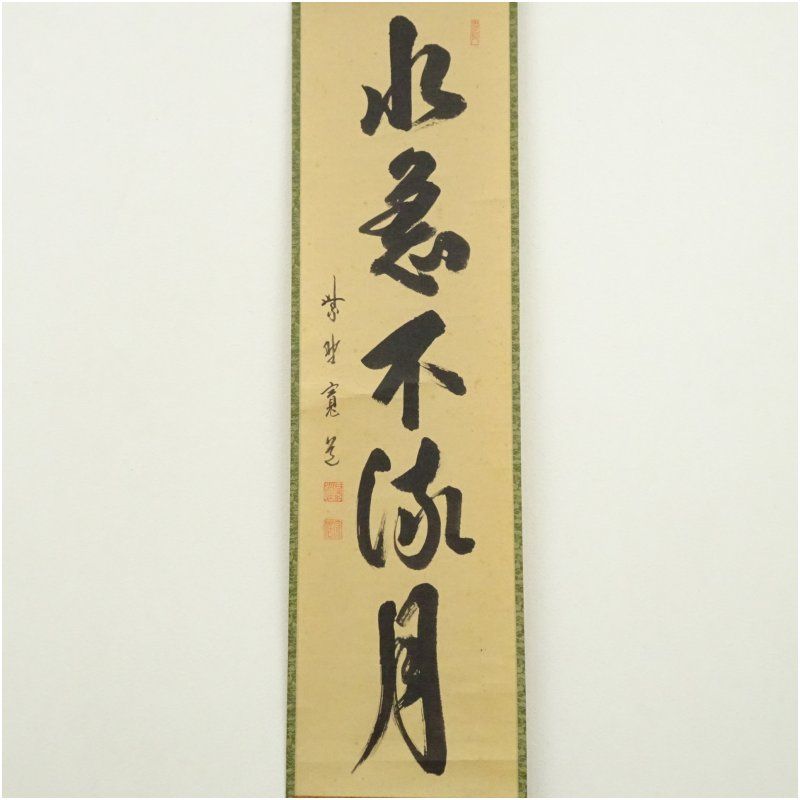 水急不流月
紫野寛道